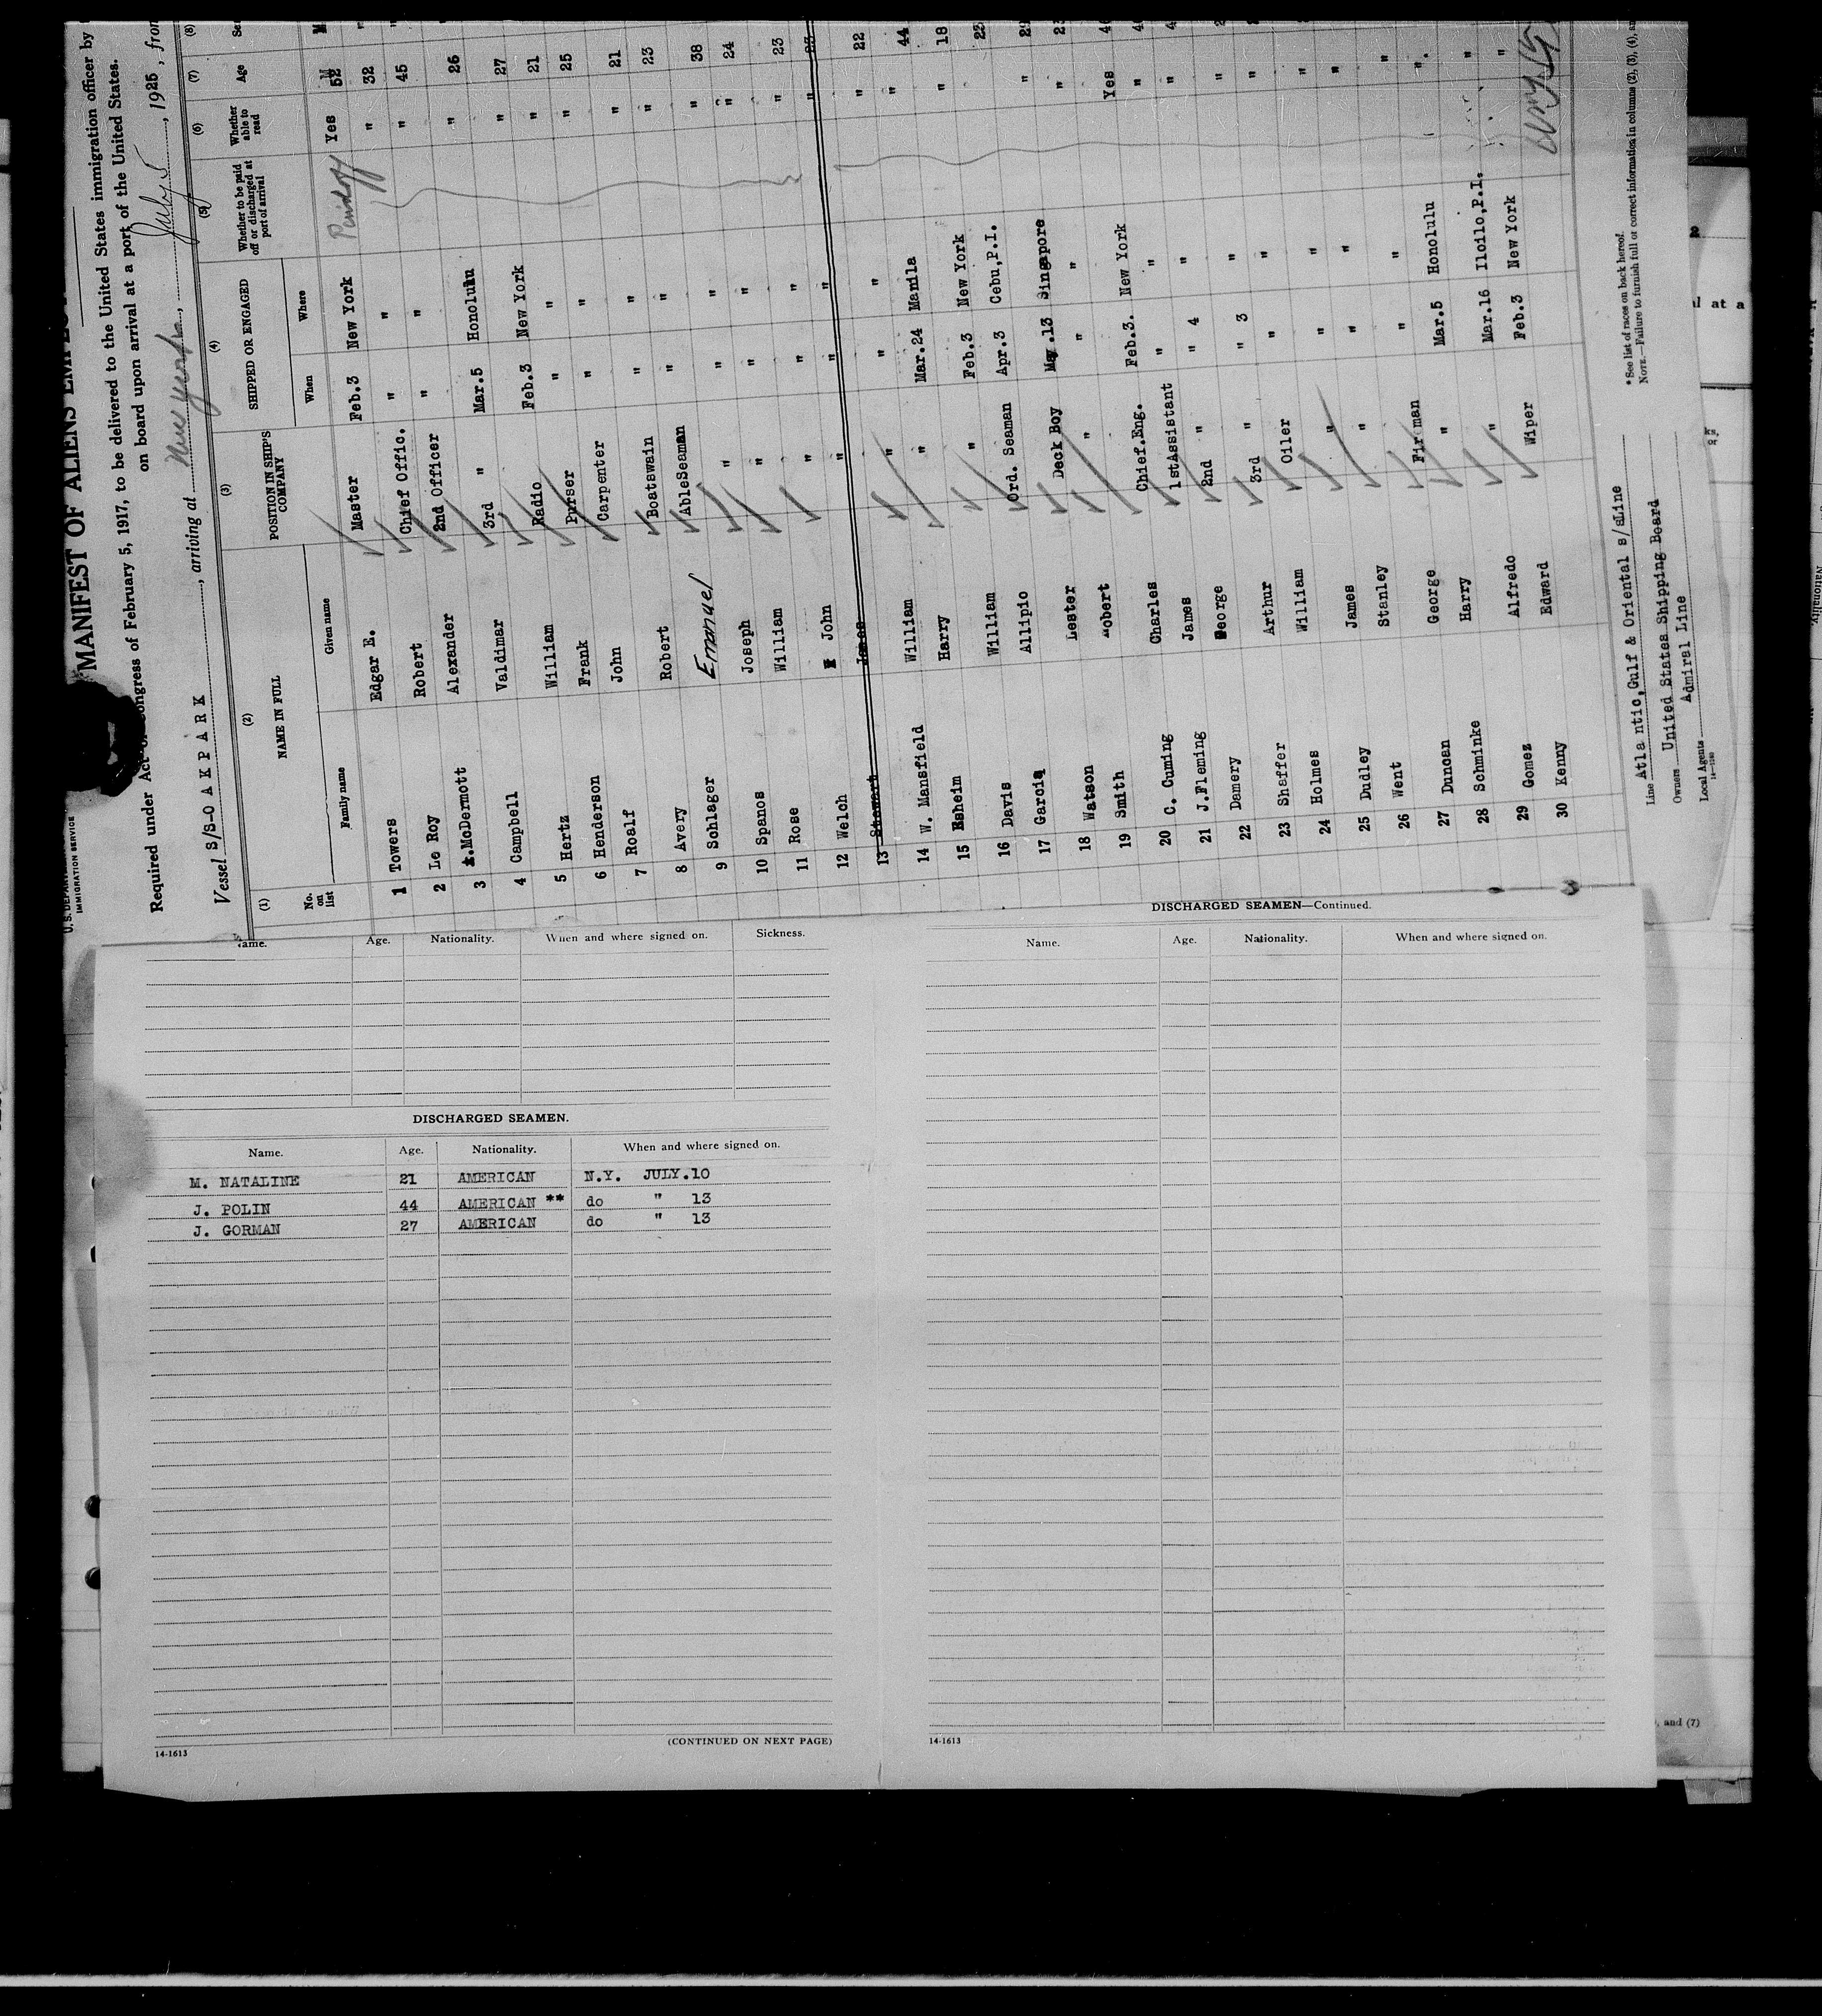 U. S. DEPARTMENT
IMMIGRATION SERVICE
MANIFEST OF ALIENS
Required under Act of Congress of February 5, 1917, to be delivered to the United States immigration officer by
on board upon arrival at a port of the United States.
Vessel S/S-OAKPARK, arriving at New York, July 5, 1925, from
(1) (2) (3) (4) (5) (6) (7) (8)
No. on list NAME IN FULL POSITION IN SHIP'S COMPANY SHIPPED OR ENGAGED Whether to be paid off or discharged at port of arrival Whether able to read Age
Family name Given name When Where
1 Towers Edgar E. Master Feb.3 New York Yes 52
2 Le Roy Robert Chief Offic. " " " 32
3 McDermott Alexander 2nd Officer " " " 45
4 Campbell Valdimar 3rd " Mar.5 Honolulu " 26
5 Hertz William Radio Feb.3 New York " 27
6 Henderson Frank Purser " " " 21
7 Roalf John Carpenter " " " 25
8 Avery Robert Boatswain " " " 21
9 Schlager Emanuel AbleSeaman " " " 23
10 Spanos Joseph " " " " 38
11 Rose William " " " " 24
12 Welch John " " " " 23
13 Stewart James " " " " 23
14 W. Mansfield William " " " " 22
15 Esheim Harry " Mar.24 Manila " 44
16 Davis William " Feb.3 New York " 18
17 Garcia Allipio Ord. Seaman Apr.3 Cebu,P.I. 23
18 Watson Lester Deck Boy May.13 Singapore "
19 Smith Robert " " " "
20 C. Cuming Charles Chief.Eng. Feb.3. New York Yes
21 J.Fleming James 1stAssistant " " "
22 Damery George 2nd " " 4 " "
23 Shaffer Arthur 3rd " " 3 " "
24 Holmes William Oiler " " "
25 Dudley James " " " "
26 Went Stanley " " " "
27 Duncan George Fireman " " "
28 Schminke Harry " Mar.5 Honolulu "
29 Gomez Alfredo " Mar.16 Iloilo,P.I. "
30 Kenny Edward Wiper Feb.3 New York "
Line Atlantic,Gulf & Oriental s/sLine
Owners United States Shipping Board
Local Agents Admiral Line
* See list of races on back hereof.
NOTE.—Failure to furnish full or correct information in columns (2), (3), (4),
Name. Age. Nationality. When and where signed on. Sickness.
DISCHARGED SEAMEN.
Name. Age. Nationality. When and where signed on.
M. NATALINE 21 AMERICAN N.Y. JULY.10
J. POLIN 44 AMERICAN ** do " 13
J. GORMAN 27 AMERICAN do " 13
14-1613 (CONTINUED ON NEXT PAGE)
DISCHARGED SEAMEN—Continued.
Name. Age. Nationality. When and where signed on.
14-1613
, and (7)